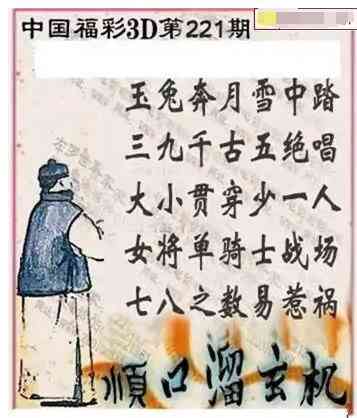 中国福彩3D第221期
玉兔奔月雪中踏
三九千古五绝唱
大小贯穿少一人
女将单骑士战场
七八之数易惹祸
顺口溜玄机